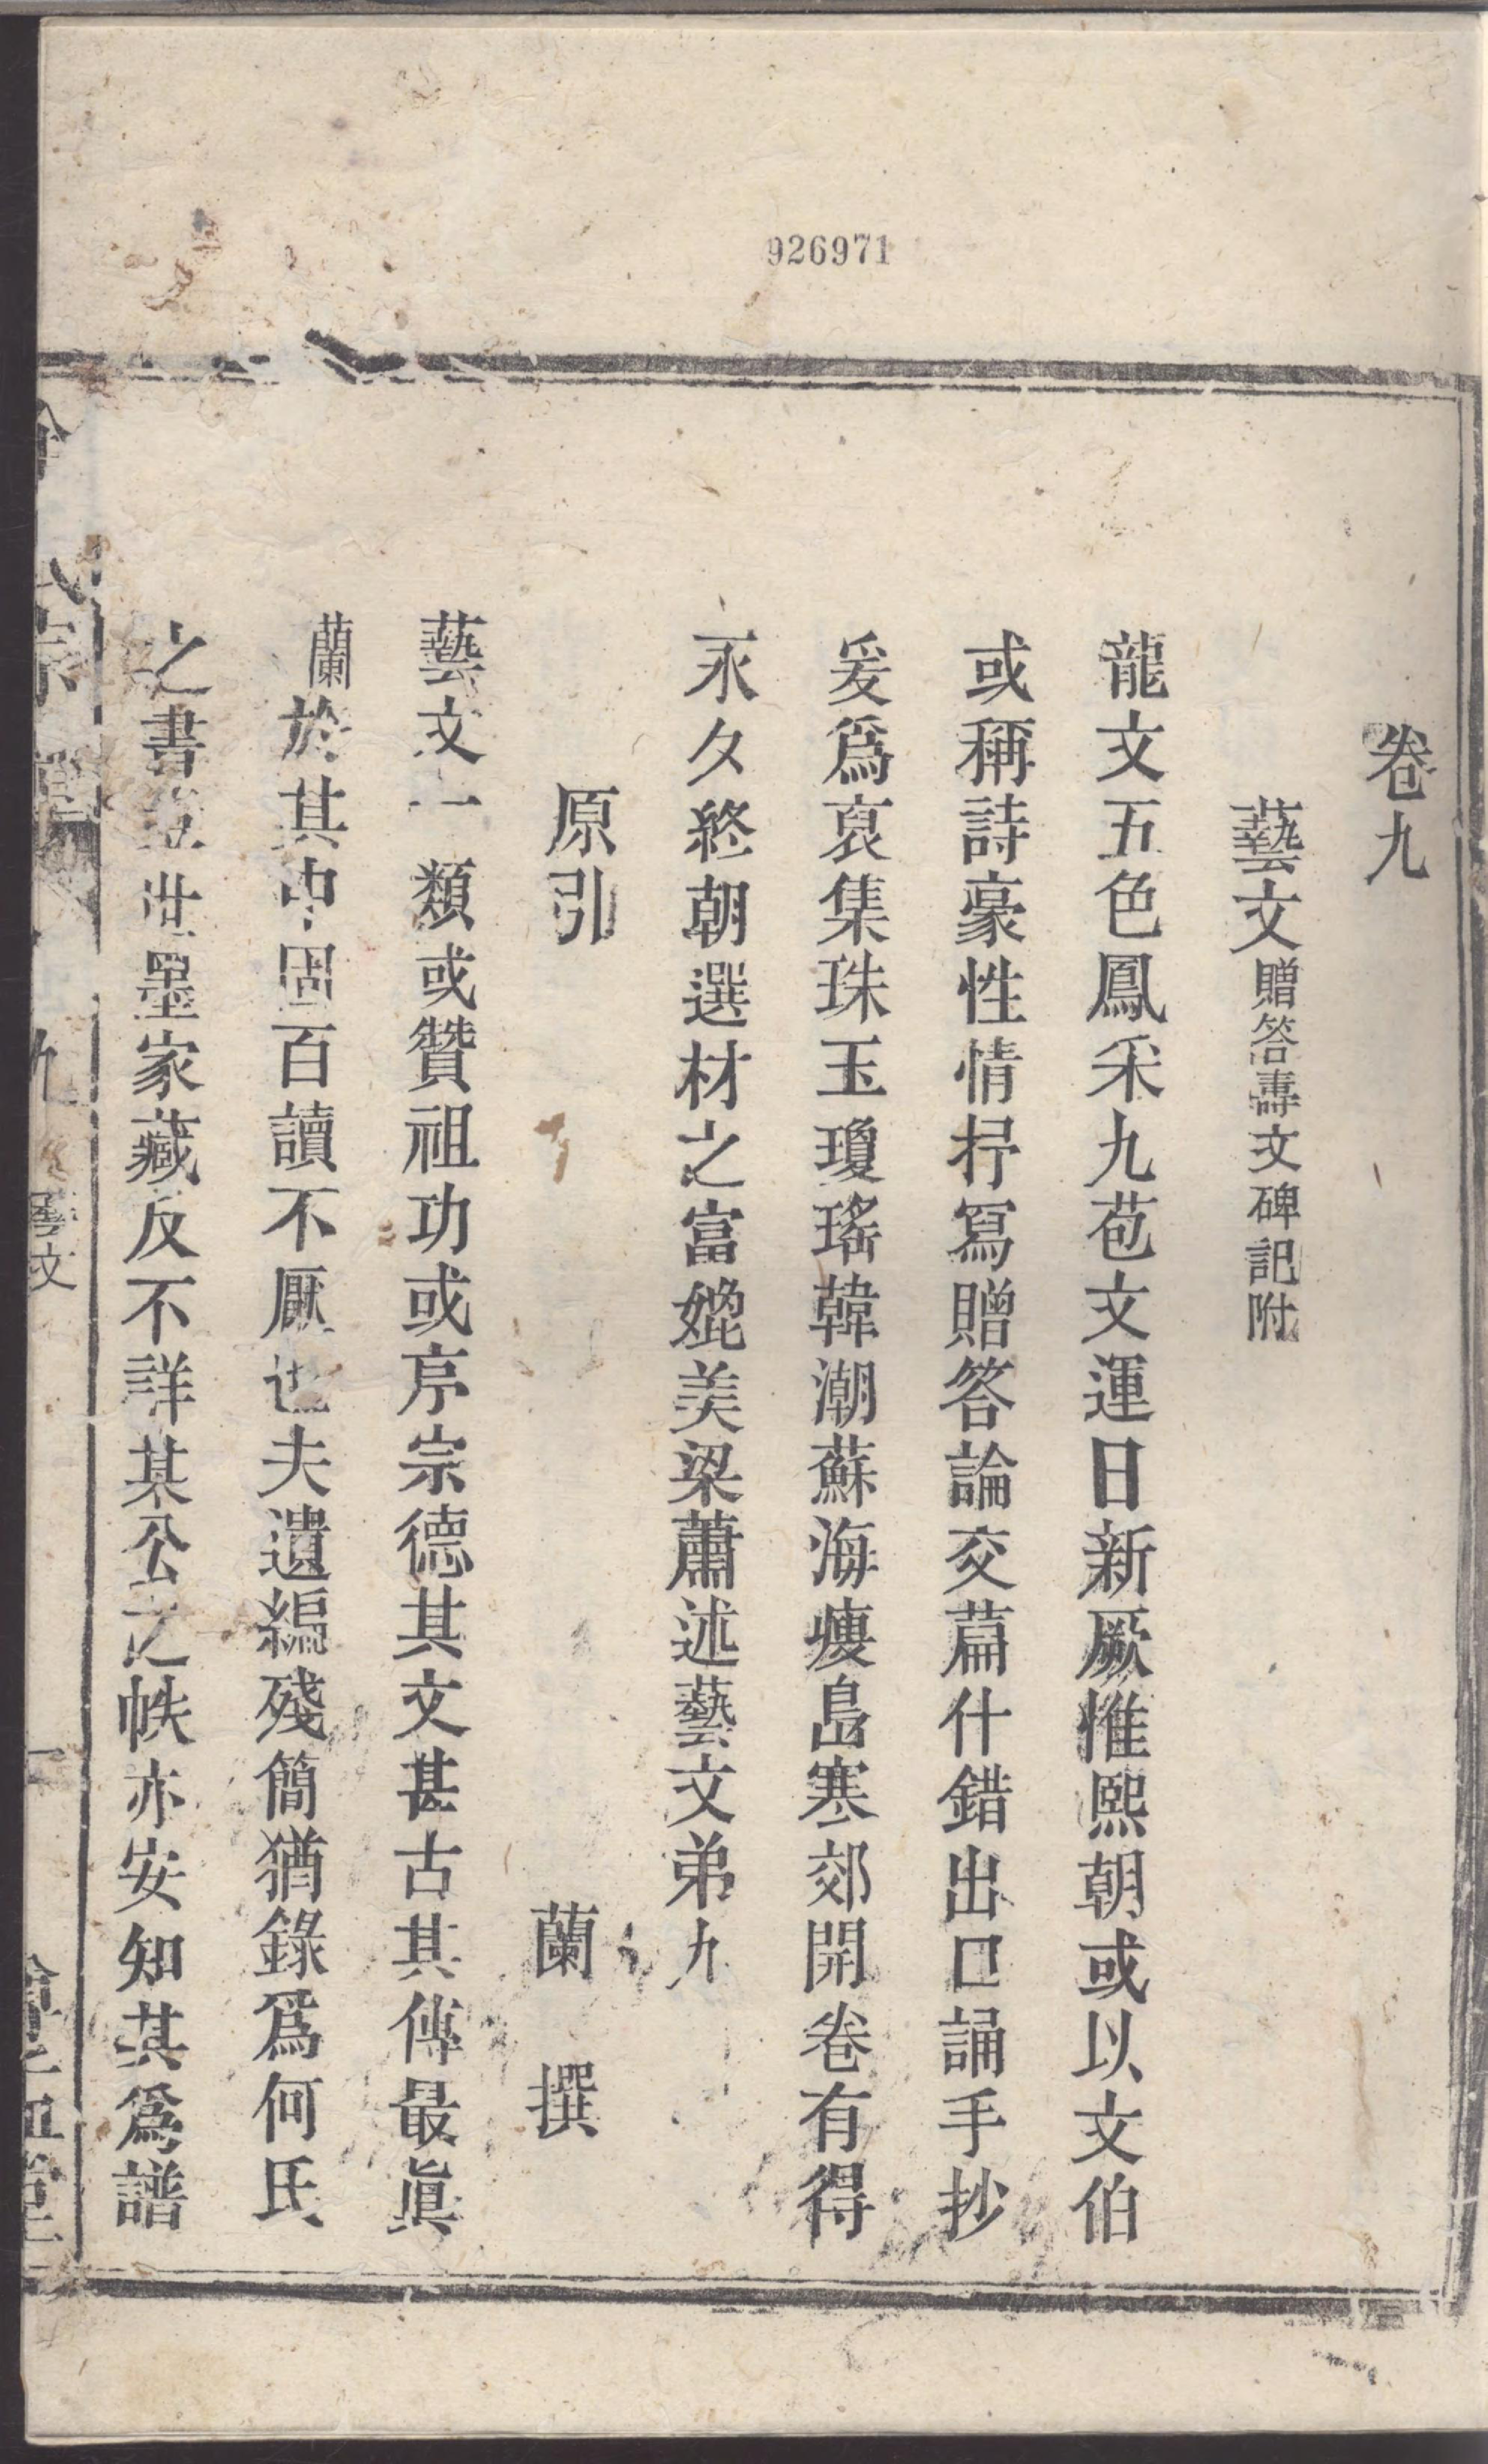 926971
卷九
藝文贈答壽文碑記附
龍文五色鳳采九苞文運日新厥惟熙朝或以文伯
或稱詩豪性情抒寫贈答論交篇什錯出口誦手抄
爰爲裒集珠玉瓊瑤韓潮蘇海瘦島寒郊開卷有得
永久終朝選材之富媲美梁蕭述藝文弟九
原引 蘭 撰
藝文一類或贊祖功或序宗德其文甚古其傳最眞
蘭於其中固百讀不厭也夫遺編殘簡猶錄爲何氏
之書 世墨家藏反不詳某公之帙亦安知其爲譜
宗譜 九 藝文